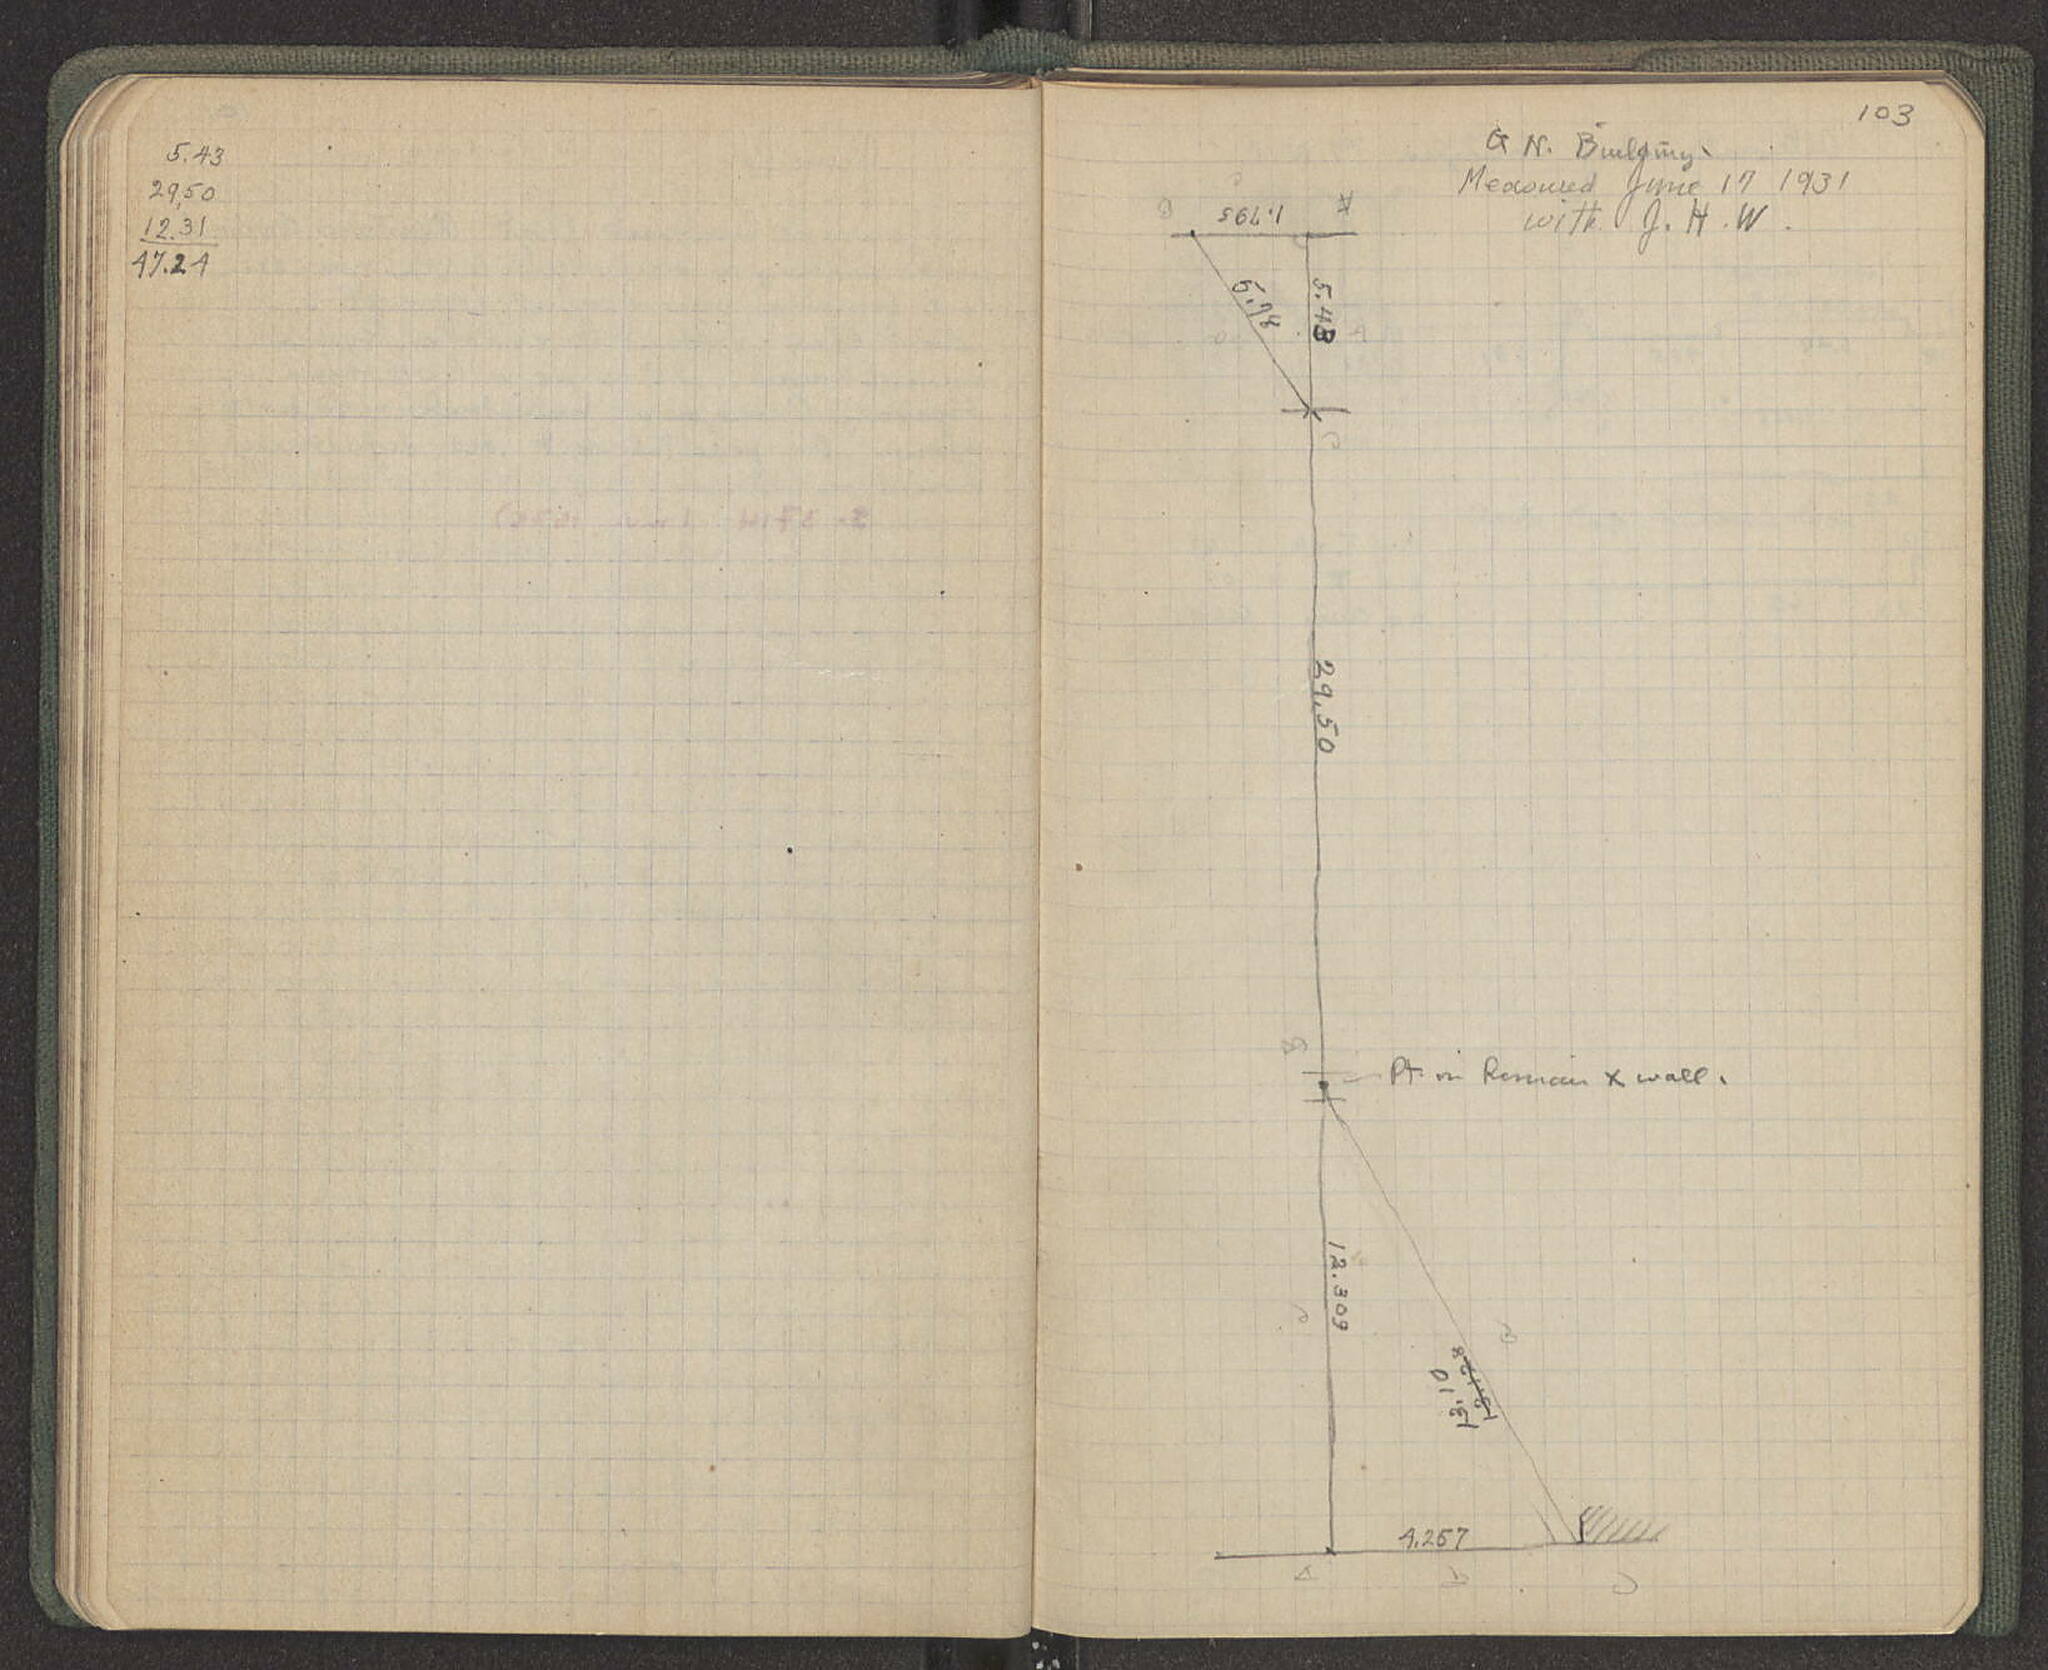 5.43
29,50
12.31
47.24
103
G N. Building.
Measured June 17 1931
with J. H. W.
B 1.795 A
5.78 5.43
C
29,50
B
Pt. on Roman X wall.
12.309
c a
13.128
13.10
4.257
A b C